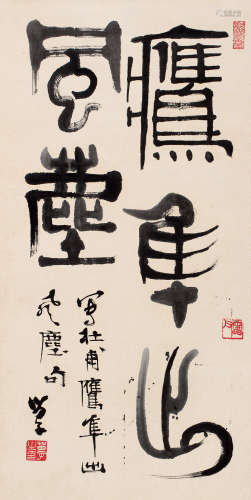 鷹隼出
風塵
寫杜甫鷹隼出
風塵句